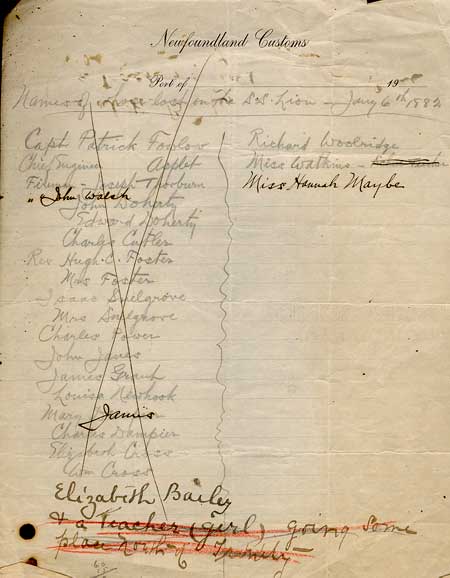 Newfoundland Customs
Port of 19
Names of those lost on the S.S. Lion - Jany 6th 1882
Capt Patrick Fowlow
Chief Engineer Applet
Fireman - Joseph Thorburn
" John Walsh
John Doherty
Edward Doherty
Charles Cutler
Rev Hugh C. Foster
Mrs Foster
Isaac Snelgrove
Mrs Snelgrove
Charles Power
John Janes
James Grant
Louisa Newhook
Mary Jamis
Charles Dampier
Elizabeth Cross
Cross
Elizabeth Bailey
& a Teacher (girl) going some
place North of Trinity
Richard Woolridge
Miss Watkins -
Miss Hannah Maybe